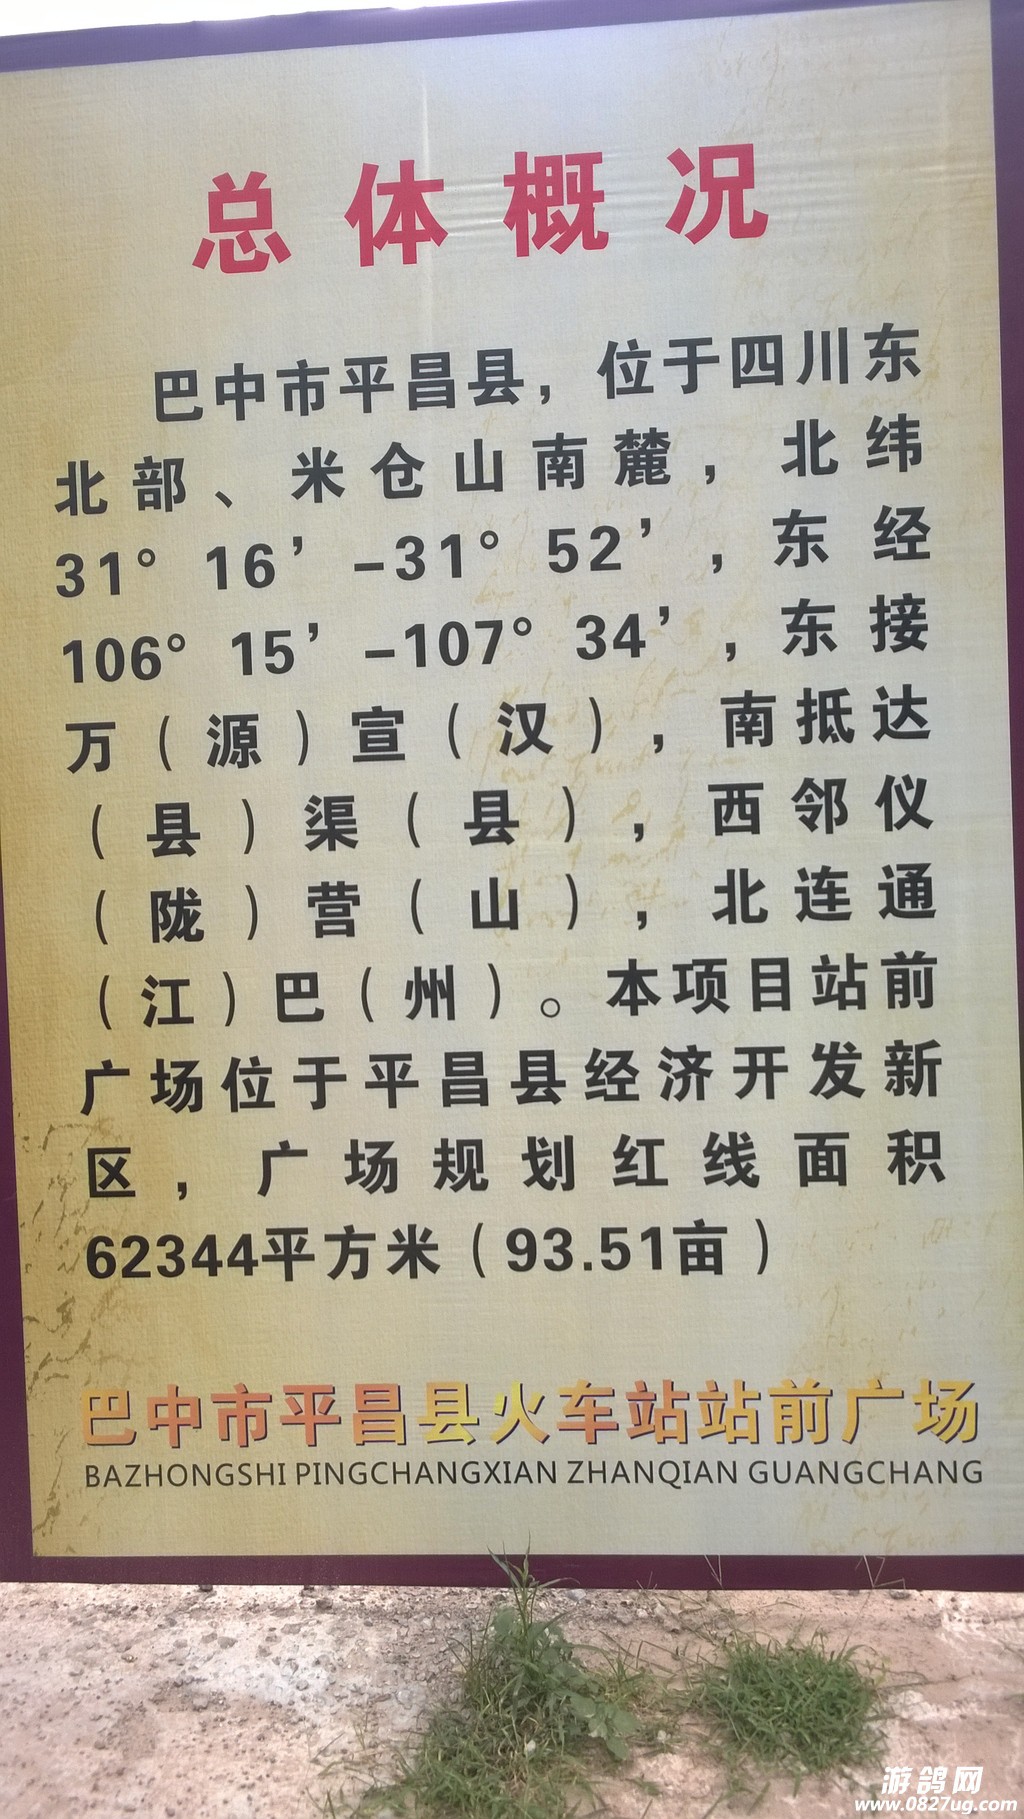 总体概况
巴中市平昌县，位于四川东
北部、米仓山南麓，北纬
31° 16’ -31° 52’ ，东经
106° 15’ -107° 34’ ，东接
万（源）宣（汉），南抵达
（县）渠（县），西邻仪
（陇）营（山），北连通
（江）巴（州）。本项目站前
广场位于平昌县经济开发新
区，广场规划红线面积
62344平方米（93.51亩）
巴中市平昌县火车站站前广场
BAZHONGSHI PINGCHANGXIAN ZHANQIAN GUANGCHANG
游鸽网
www.0827ug.com